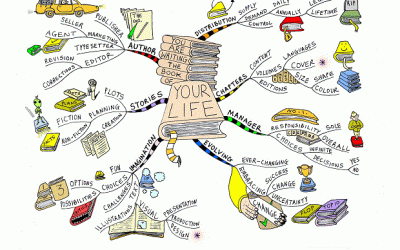 YOU
ARE
WRITING
THE
BOOK
YOUR
LIFE
AUTHOR
SELLER
PUBLISHER
AGENT
MARKETING
TYPESETTER
REVISION
EDITOR
CORRECTIONS
DISTRIBUTION
SUPPLY
DEMAND
CONTROL
DAILY
ANNUALLY
LIFETIME
RIP
CHAPTERS
CONTENT
VOLUMES
EDITIONS
LANGUAGES
COVER
SIZE
SHAPE
COLOUR
MANAGER
NO. 1
RESPONSIBILITY
SOLE
OVERALL
CHOICES
INFINITE
DECISIONS
YES
NO
EVOLVING
EVER-CHANGING
EMBRACING
SUCCESS
CHANGE
UNCERTAINTY
CHANGE
FLOP
IMAGINATION
FUN
CHOICES
OPTIONS
POSSIBILITIES
CHALLENGES
TEXT
ILLUSTRATION
VISUAL
PRESENTATION
PRODUCTION
DESIGN
STORIES
PLOTS
PLANNING
FICTION
NON-FICTION
CREATION